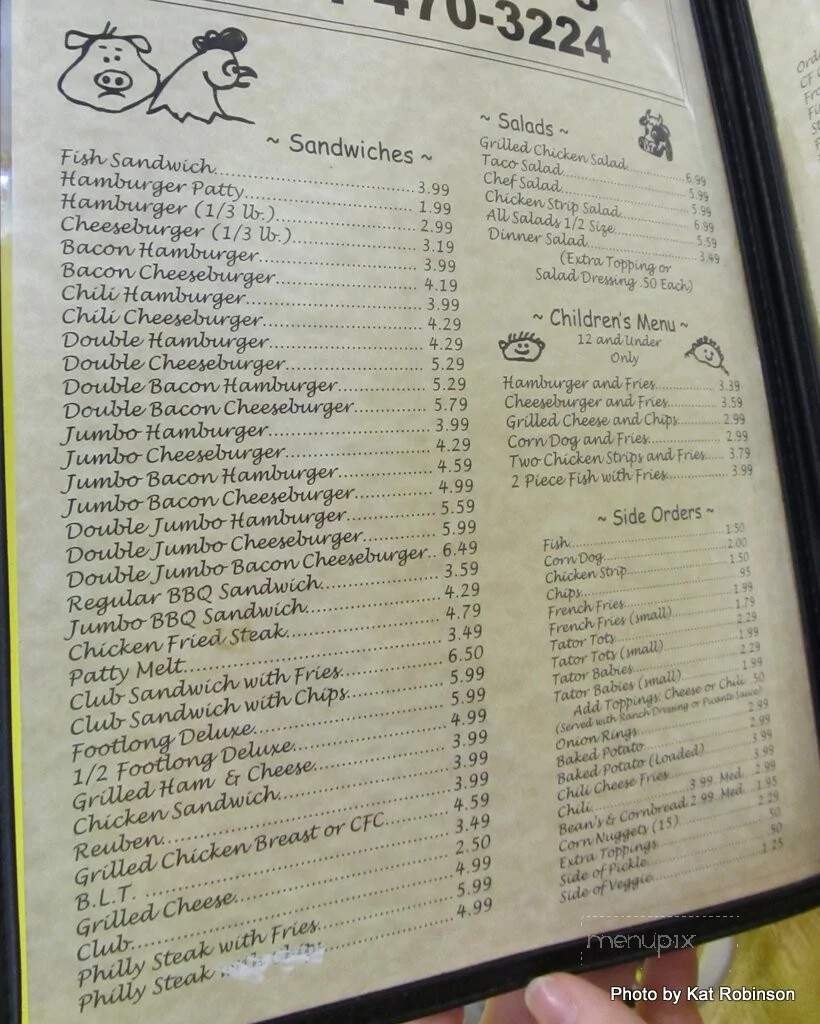 470-3224
~ Sandwiches ~
Fish Sandwich 3.99
Hamburger Patty 1.99
Hamburger (1/3 lb.) 2.99
Cheeseburger (1/3 lb.) 3.19
Bacon Hamburger 3.99
Bacon Cheeseburger 4.19
Chili Hamburger 3.99
Chili Cheeseburger 4.29
Double Hamburger 4.29
Double Cheeseburger 5.29
Double Bacon Hamburger 5.29
Double Bacon Cheeseburger 5.79
Jumbo Hamburger 3.99
Jumbo Cheeseburger 4.29
Jumbo Bacon Hamburger 4.59
Jumbo Bacon Cheeseburger 4.99
Double Jumbo Hamburger 5.59
Double Jumbo Cheeseburger 5.99
Double Jumbo Bacon Cheeseburger 6.49
Regular BBQ Sandwich 3.59
Jumbo BBQ Sandwich 4.29
Chicken Fried Steak 4.79
Patty Melt 3.49
Club Sandwich with Fries 6.50
Club Sandwich with Chips 5.99
Footlong Deluxe 5.99
1/2 Footlong Deluxe 4.99
Grilled Ham & Cheese 3.99
Chicken Sandwich 3.99
Reuben 3.99
Grilled Chicken Breast or CFC 4.59
B.L.T. 3.49
Grilled Cheese 2.50
Club 4.99
Philly Steak with Fries 5.99
Philly Steak with Chips 4.99
~ Salads ~
Grilled Chicken Salad 6.99
Taco Salad 5.99
Chef Salad 5.99
Chicken Strip Salad 6.99
All Salads 1/2 Size 5.59
Dinner Salad 3.49
(Extra Topping or
Salad Dressing .50 Each)
~ Children's Menu ~
12 and Under
Only
Hamburger and Fries 3.39
Cheeseburger and Fries 3.59
Grilled Cheese and Chips 2.99
Corn Dog and Fries 2.99
Two Chicken Strips and Fries 3.79
2 Piece Fish with Fries 3.99
~ Side Orders ~
Fish 1.50
Corn Dog 2.00
Chicken Strip 1.50
Chips .95
French Fries 1.99
French Fries (small) 1.79
Tator Tots 2.29
Tator Tots (small) 1.99
Tator Babies 2.29
Tator Babies (small) 1.99
Add Toppings: Cheese or Chili .50
(Served with Ranch Dressing or Picante Sauce)
Onion Rings 2.99
Baked Potato 2.99
Baked Potato (Loaded) 3.99
Chili Cheese Fries 3.99
Chili 3.99 Med. 2.99
Bean's & Cornbread 2.99 Med. 1.95
Corn Nuggets (15) 2.29
Extra Toppings .50
Side of Pickle .50
Side of Veggie 1.25
menupix
Photo by Kat Robinson